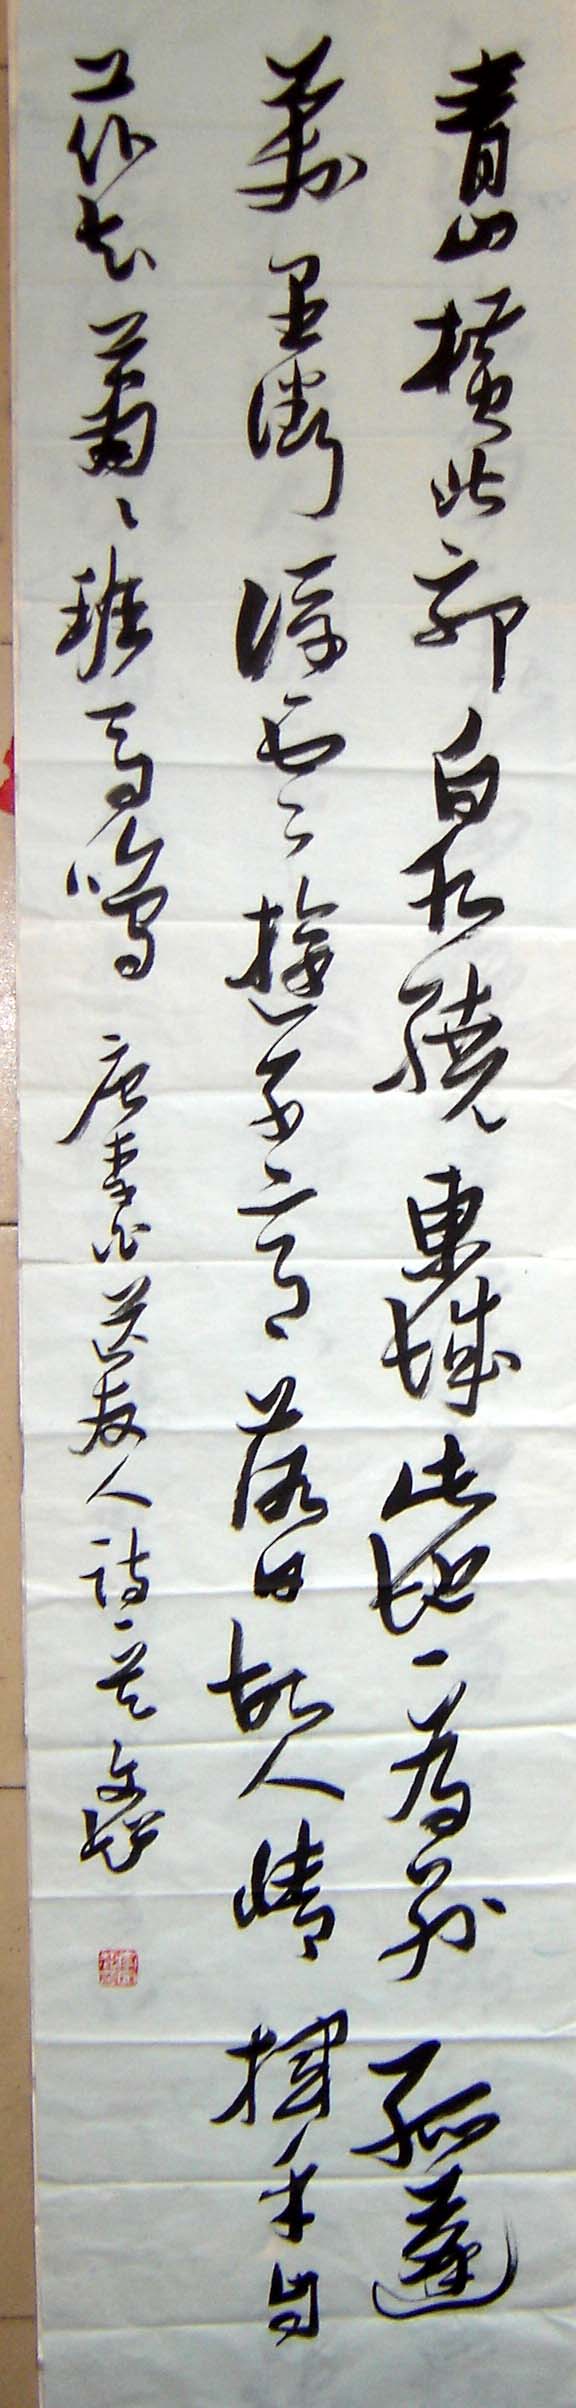 青山橫北郭白水繞東城此地一為別孤蓬
萬里徵浮雲遊子意落日故人情揮手自
茲去蕭〻班馬鳴 唐李白送友人詩一首 文